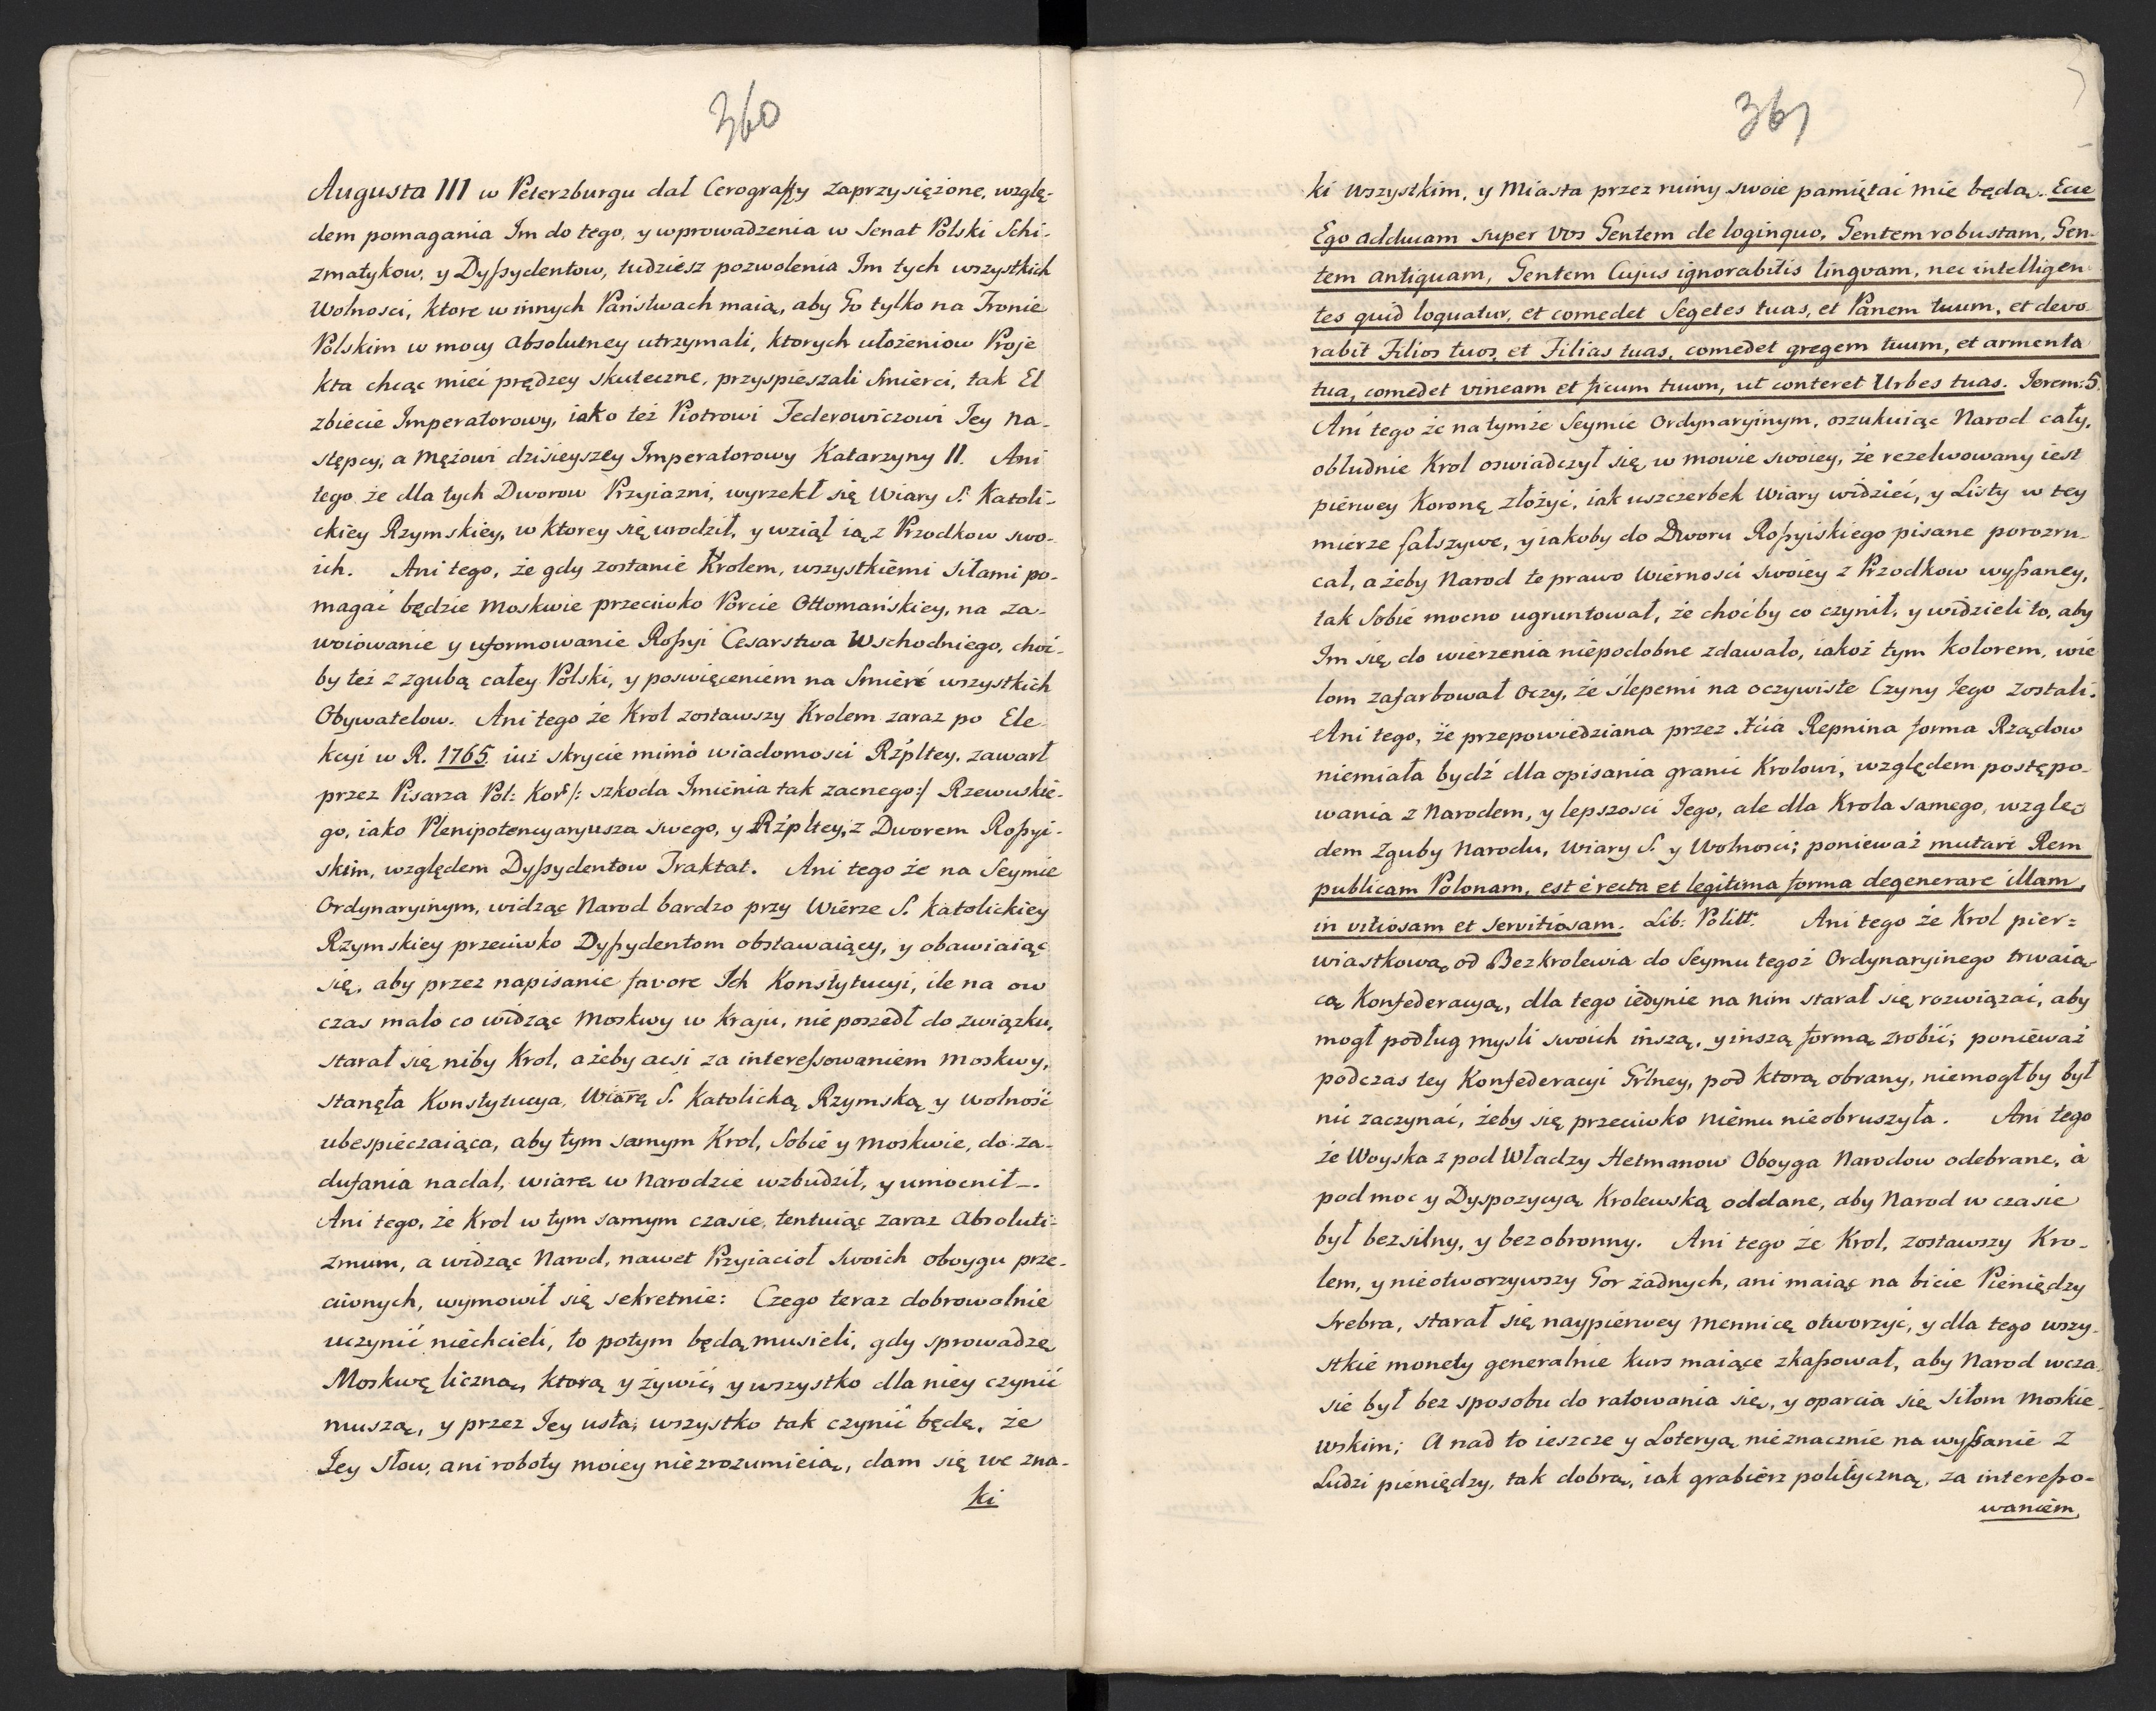 360
Augusta III w Peterzburgu dał Cerograffy zaprzysiężone, wzglę-
dem pomagania Im do tego, y wprowadzenia w Senat Polski Schi-
zmatykow, y Dyssydentow, tudziesz pozwolenia Im tych wszystkich
Wolnosci, ktore w innych Państwach maią, aby Go tylko na Tronie
Polskim w mocy Absolutney utrzymali, ktorych ułożeniow Proje
kta chcąc mieć prędzey skuteczne, przyspieszali Smierci, tak El
zbiecie Imperatorowy, iako też Piotrowi Federowiczowi Jey na-
stępcy, a Mężowi dzisieyszey Imperatorowy Katarzyny II. Ani
tego że dla tych Dworow Przyiazni, wyrzekł się Wiary S. Katoli-
ckiey Rzymskiey, w ktorey się urodził, y wziął ią z Przodkow swo-
ich. Ani tego, że gdy zostanie Krolem, wszystkiemi siłami po-
magać będzie Moskwie przeciwko Porcie Ottomańskiey, na za-
woiowanie y uformowanie Rossyi Cesarstwa Wschodniego, choć-
by też z zgubą całey Polski, y poswięceniem na Smierć wszystkich
Obywatelow. Ani tego że Krol zostawszy Krolem zaraz po Ele
kcyi w R. 1765 iuż skrycie mimo wiadomosci Rzpltey, zawarł
przez Pisarza Pol: Kor: /: szkoda Imienia tak zacnego :/ Rzewuskie-
go, iako Plenipotencyaryusza swego, y Rzpltey, z Dworem Rossyi-
skim, względem Dyssydentow Traktat. Ani tego że na Seymie
Ordynaryinym, widząc Narod bardzo przy Wierze S. Katolickiey
Rzymskiey przeciwko Dyssydentom obstawaiący, y obawiaiąc
się, aby przez napisanie favore Ich Konstytucyi, ile na ow
czas mało co widząc Moskwy w Kraju, nie poszedł do związku,
starał się niby Krol, ażeby acsi za interessowaniem Moskwy,
stanęła Konstytucya, Wiarę S. Katolicką Rzymską y Wolność
ubespieczaiąca, aby tym samym Krol, Sobie y Moskwie, do za-
dufania nadal, wiarę w Narodzie wzbudził, y umocnił.
Ani tego, że Krol w tym samym czasie, tentuiąc zaraz Absoluti-
zmum, a widząc Narod, nawet Przyiacioł Swoich oboygu prze-
ciwnych, wymowił się sekretnie: Czego teraz dobrowolnie
uczynić niechcieli, to potym będą musieli, gdy sprowadzę
Moskwę liczną, ktorą y żywić, y wszystko dla niey czynić
muszą, y przez Jey usta, wszystko tak czynić będę, że
Jey Słow, ani roboty moiey niezrozumieią, dam się we zna-
ki
361
ki wszystkim, y Miasta przez ruiny swoie pamiętać mie będą. Ecce
Ego adducam super vos Gentem de loginquo, Gentem robustam, Gen-
tem antiquam, Gentem Cujus ignorabitis lingvam, nec intelligen-
tes quid loquatur, et comedet Segetes tuas, et Panem tuum, et devo-
rabit Filios tuos et Filias tuas, comedet gregem tuum, et armenta
tua, comedet vineam et ficum tuum, ut conteret Urbes tuas. Jerem: 5.
Ani tego że na tymże Seymie Ordynaryinym, oszukuiąc Narod cały,
obłudnie Krol oswiadczył się w mowie swoiey, że rezelwowany iest
pierwey Koronę złożyć, iak uszczerbek Wiary widzieć, y Listy w tey
mierze fałszywe, y iakoby do Dworu Rossyiskiego pisane porozru-
cał, ażeby Narod te prawo wierności swoiey z Przodkow wyssaney,
tak Sobie mocno ugruntował, że choćby co czynił, y widzieli to, aby
Im się do wierzenia niepodobne zdawało, iakoż tym kolorem, wie
lom zafarbował Oczy, że ślepemi na oczywiste Czyny Jego zostali.
Ani tego, że przepowiedziana przez Xcia Repnina forma Rządow
niemiała bydź dla opisania granic Krolowi, względem postępo-
wania z Narodem, y lepszosci Jego, ale dla Krola samego, wzglę-
dem Zguby Narodu, Wiary S. y Wolnosci; ponieważ mutari Rem
publicam Polonam, est e recta et legitima forma degenerare illam,
in vitiosam et servitiosam. Lib: Politt. Ani tego że Krol pier=
wiastkową od Bezkrolewia do Seymu tegoż Ordynaryinego trwaią-
cą Konfederacyą, dla tego iedynie na nim starał się rozwiązać, aby
mogł podług mysli swoich inszą, y inszą formę zrobić; ponieważ
podczas tey Konfederacyi Grlney, pod ktorą obrany, niemogłby był
nic zaczynać, żeby się przeciwko niemu nieobruszyła. Ani tego
że Woyska z pod Władzy Hetmanow Oboyga Narodow odebrane, a
pod moc y Dyspozycyą Krolewską oddane, aby Narod w czasie
był bezsilny, y bezobronny. Ani tego że Krol, zostawszy Kro-
lem, y nieotworzywszy Gor żadnych, ani maiąc na bicie Pieniędzy
Srebra, starał się naypierwey Mennicę otworzyć, y dla tego wszy-
stkie monety generalnie kurs maiące zkassował, aby Narod wcza-
sie był bez sposobu do ratowania się, y oparcia się siłom Moskie-
wskim; A nad to ieszcze y Loteryą nieznacznie na wyssanie z
Ludzi pieniędzy, tak dobrą, iak grabierz polityczną, za interesso-
waniem